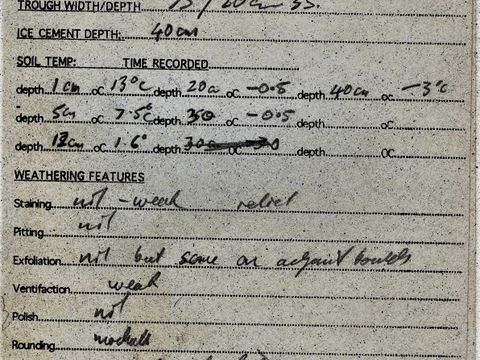 TROUGH WIDTH/DEPTH
ICE CEMENT DEPTH: 40cm
SOIL TEMP: TIME RECORDED
depth 1cm oC 13°C depth 20c oC -0.5 depth 40cm oC -3°C
depth 5cm oC 7.5°C depth 30 oC -0.5 depth oC
depth 12cm oC 1.6° depth oC depth oC
WEATHERING FEATURES
Staining nil - weak relict
Pitting nil
Exfoliation nil but some on adjacent boulders
Ventifaction weak
Polish nil
Rounding